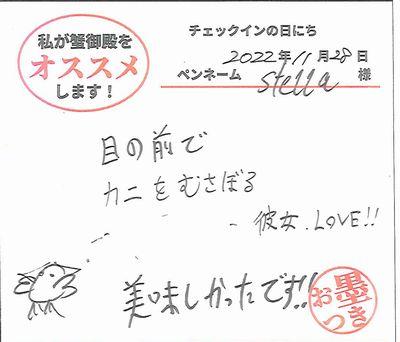 私が蟹御殿を
オススメ
します！
チェックインの日にち
2022年11月28日
ペンネーム stella 様
目の前で
カニをむさぼる
彼女.LOVE!!
美味しかったです!!
お墨つき